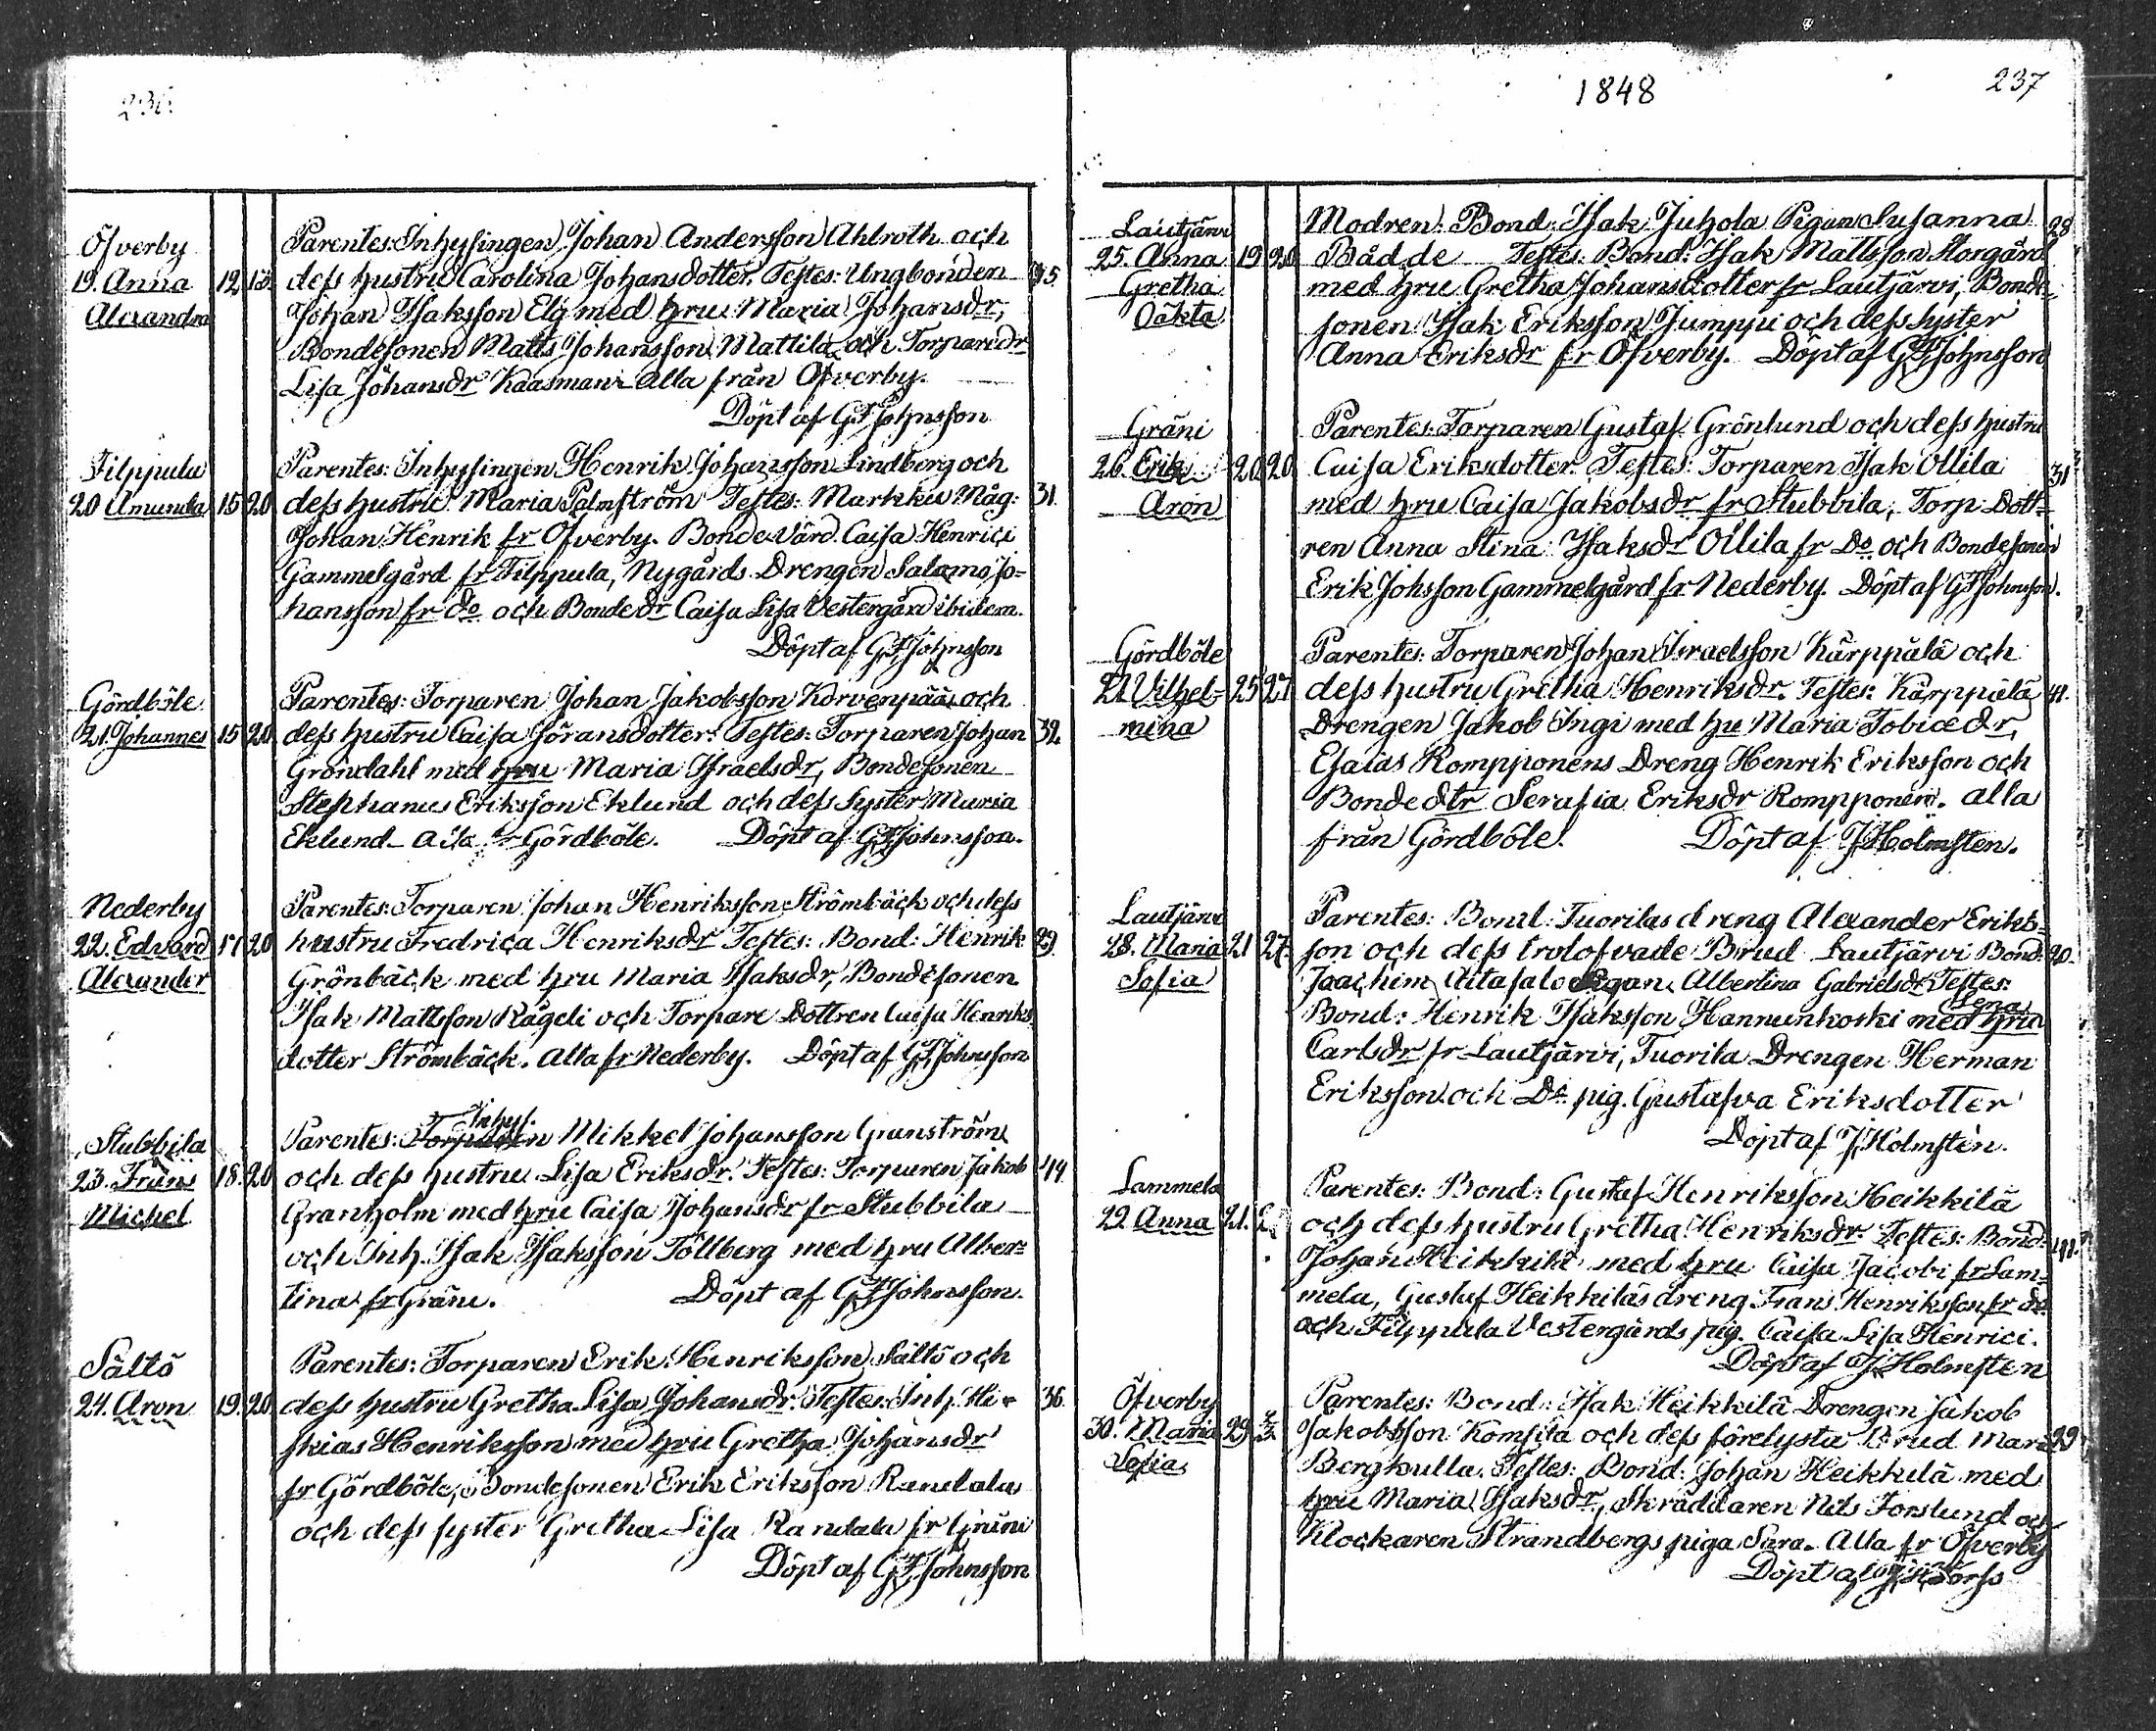 236
Öfverby
19. Anna 12 13.
Alexandra
Parentes: Inhysingen Johan Andersson Ahlroth och
dess hustru Carolina Johansdotter. Testes: Ungbonden 35
Johan Isaksson Elg med hru Maria Johansdr,
Bondesonen Matts Johansson Mattila och Torparedr
Lisa Johansdr Kaasman alla från Öfverby.
Döpt af GF Johnsson
Filppula
20 Amanda 15 20
Parentes: Inhysingen Henrik Johansson Lindberg och
dess hustru Maria Palmström Testes: Markku Måg: 31.
Johan Henrik fr Öfverby. Bonde Värd. Caisa Henrici
Gammelgård fr Filppula, Nygårds Drengen Salomo Jo-
hansson fr do och Bonde dr Caisa Lisa Vestergård ibidem.
Döpt af GF Johnsson
Gördböle
21. Johannes 15 20
Parentes: Torparen Johan Jakobsson Korvenpää och
dess hustru Caisa Jöransdotter. Testes: Torparen Johan 32.
Gröndahl med hru Maria Israelsdr, Bondesonen
Stephanus Eriksson Eklund och dess Syster Maria
Eklund alla fr Gördböle. Döpt af GF Johnsson.
Nederby
22. Edvard 17 20
Alexander
Parentes: Torparen Johan Henriksson Strömbäck och dess
hustru Fredrica Henriksdr Testes: Bond: Henrik 29.
Grönbäck med hru Maria Isaksdr, Bondesonen
Isak Mattsson Kägeli och Torpare Dottren Caisa Henriks
dotter Strömbäck. Alla fr Nederby. Döpt af GF Johnsson
Stubbila
23. Frans 18. 20
Michel
Inhys.
Parentes: Torparen Mikkel Johansson Granström
och dess hustru Lisa Eriksdr. Testes: Torparen Jakob 44
Granholm med hru Caisa Johansdr fr Stubbila
och Inh. Isak Isaksson Töllberg med hru Alber-
tina fr Gräni. Döpt af GF Johnsson.
Sältö
24. Aron 19. 20
Parentes: Torparen Erik Henriksson Sältö och
dess hustru Gretha Lisa Johansdr. Testes: Inh. 36.
skias Henriksson med hru Gretha Johansdr
fr Gördböle, Bondesonen Erik Eriksson Randala
och dess syster Gretha Lisa Randala fr Gräni
Döpt af GF Johnsson
1848
237
Lautjärvi
25. Anna 19 20
Gretha
Oäkta
Modren: Bond: Isak Juhola Pigan Susanna 28
Bådde Testes: Bond: Isak Mattsson Storgård
med hru Gretha Johansdotter fr Lautjärvi, Bonde-
sonen Isak Eriksson Jumppi och dess Syster
Anna Eriksdr fr Öfverby. Döpt af GF Johnsson
Gräni
26. Erik 20 20
Aron
Parentes: Torparen Gustaf Grönlund och dess hustru
Caisa Eriksdotter. Testes: Torparen Isak Ollila 31
med hru Caisa Jakobsdr fr Stubbila, Torp: Dott-
ren Anna Stina Isaksdr Ollila fr Do och Bondesonen
Erik Johsson Gammelgård fr Nederby. Döpt af GF Johnsson.
Gördböle
27. Vilhel- 25 27.
mina
Parentes: Torparen Johan Israelsson Kärppälä och
dess hustru Gretha Henriksdr. Testes: Kärppälä 41.
Drengen Jakob Ingi med hu Maria Tobiædr,
Esaias Rompponens Dreng Henrik Eriksson och
Bonde dtr Serafia Eriksdr Romppoinen. alla
från Gördböle. Döpt af J. Holmsten.
Lautjärvi
28. Maria 21 27.
Sofia
Parentes: Bond: Tuorilas dreng Alexander Eriks-
son och dess trolofvade Brud Lautjärvi Bond: 20.
Joachim Aitasalo Pigan Albertina Gabrielsdr Testes:
Bond: Henrik Isaksson Hannunkoski med hru Lena
Carlsdr fr Lautjärvi, Tuorila Drengen Herman
Eriksson och Do pig. Gustafva Eriksdotter
Döpt af J. Holmsten.
Lammela
29. Anna 21.
Parentes: Bond: Gustaf Henriksson Heikkilä
och dess hustru Gretha Henriksdr. Testes: Bond:
Johan Heikkilä med hru Caisa Jacobi fr Lam-
mela, Gustaf Heikkiläs dreng Frans Henriksson fr do
och Filppula Vestergårds pig. Caisa Lisa Henrici.
Döpt af J. Holmsten
Öfverby
30. Maria 29
Sofia
Parentes: Bond: Isak Heikkilä Drengen Jakob
Jakobsson Komsila och dess förelysta Brud Maria 29
Bergkulla. Testes: Bond: Johan Heikkilä med
hru Maria Isaksdr, Skräddaren Nils Forslund och
Klockaren Strandbergs piga Sara. Alla fr Öfverby
Döpt af